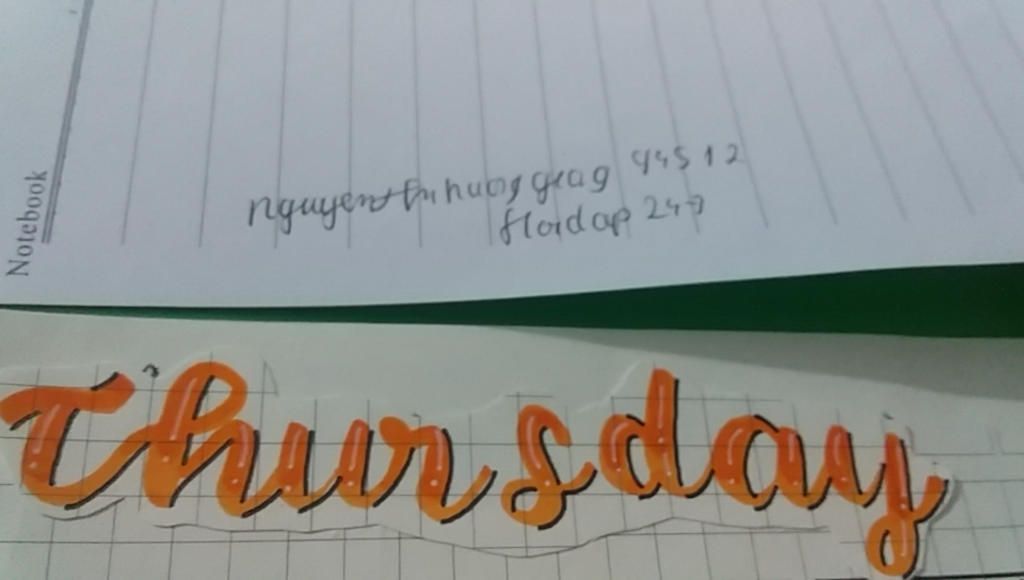 Notebook
nguyenthuhuonggiag 94512
Hoidap 247
Thursday